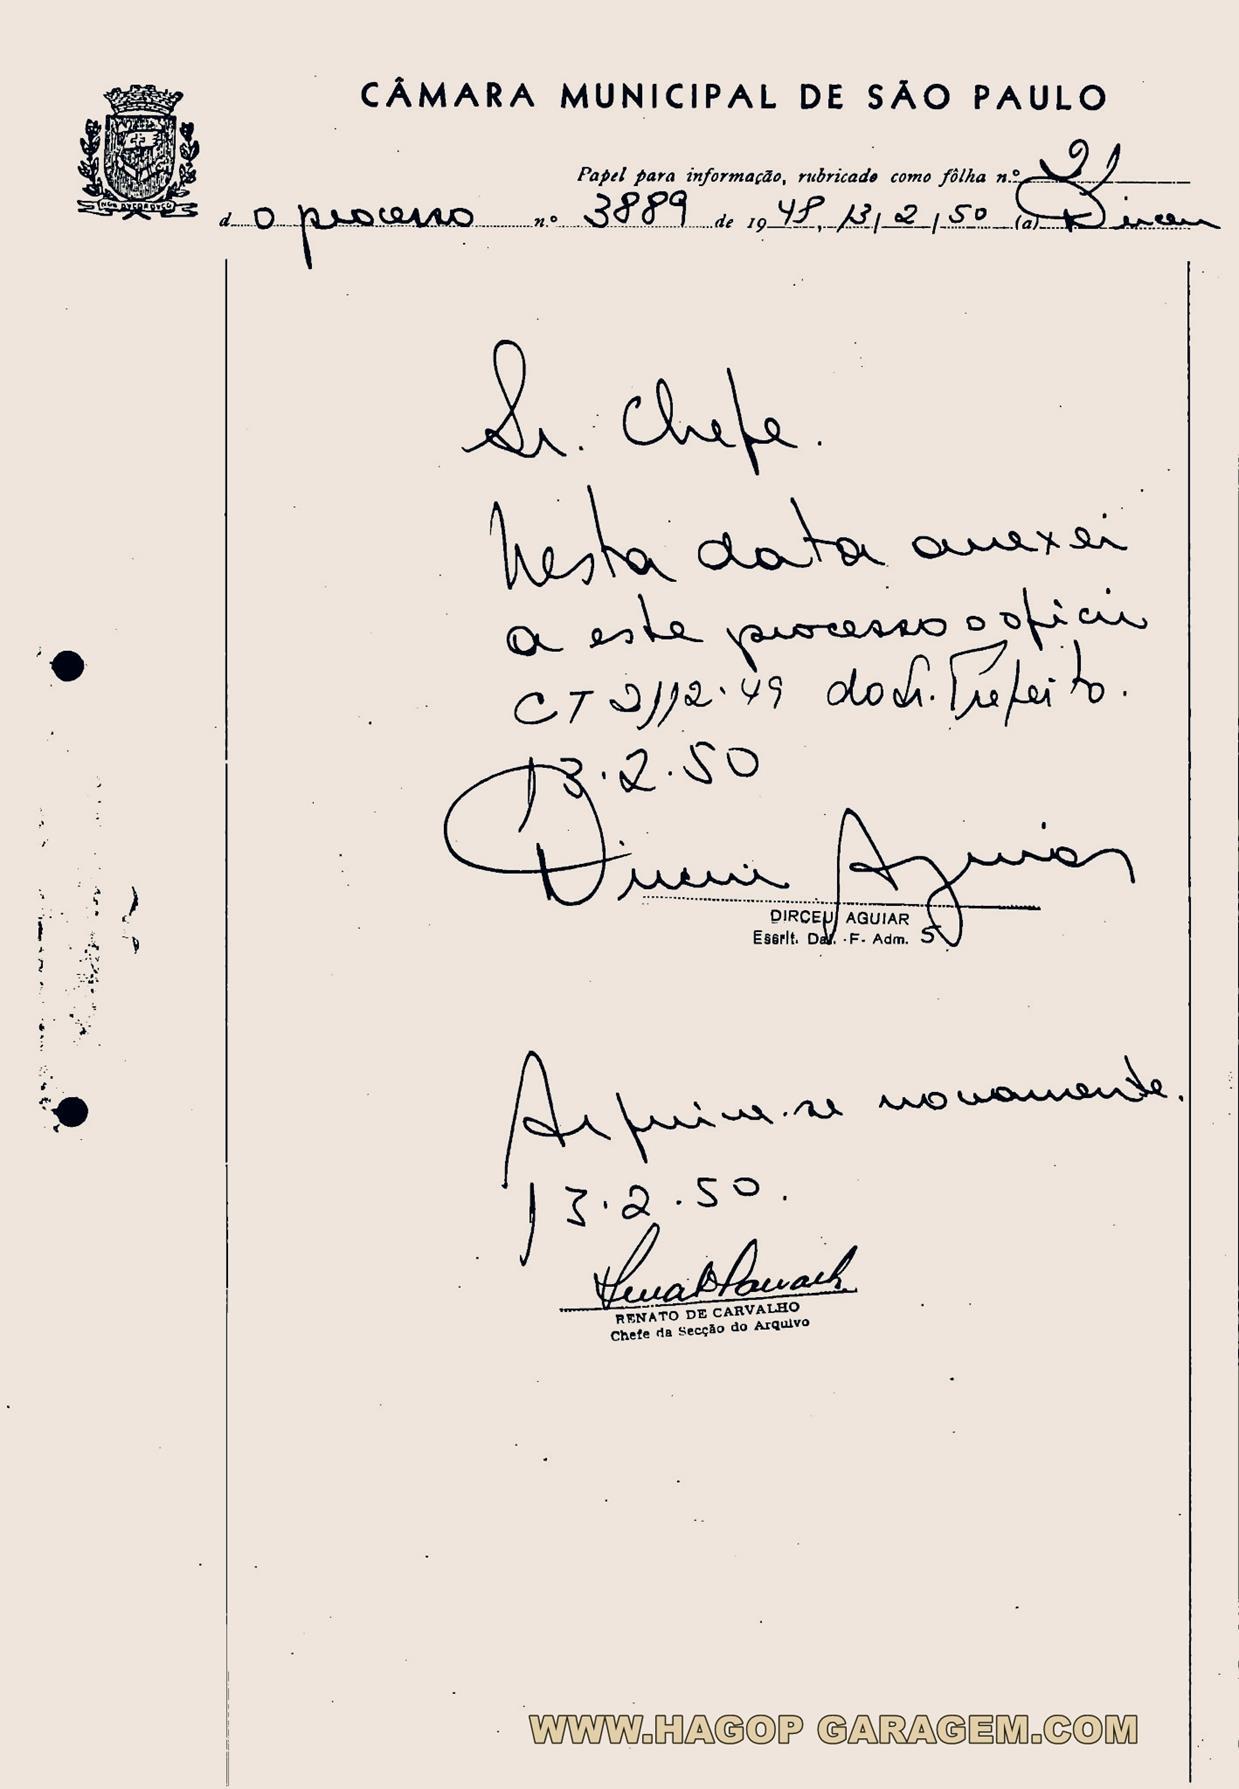 CÂMARA MUNICIPAL DE SÃO PAULO
Papel para informação, rubricado como fôlha n.º 21
do processo n.º 3889 de 1948, 13/2/50 (a) Dirceu
Sr. Chefe.
Nesta data anexei
a este processo o ofício
CT 2/12.49 do Sr. Prefeito.
13.2.50
Dirceu Aguiar
DIRCEU AGUIAR
Escrit. Dat. -F- Adm. 5
Arquive-se novamente.
13.2.50.
RENATO DE CARVALHO
Chefe da Secção do Arquivo
WWW.HAGOP GARAGEM.COM